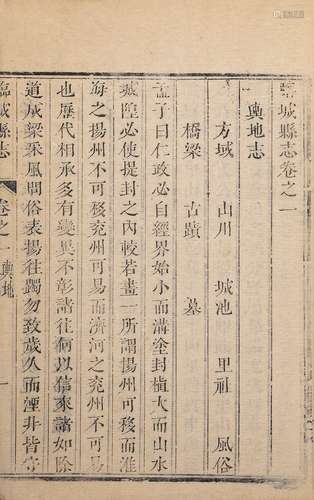 臨城縣志卷之一
輿地志
方域 山川 城池 里社 風俗
橋梁 古蹟 墓
孟子曰仁政必自經界始小而溝塗封植大而山水
城隍必使提封之內較若畫一所謂揚州可移而淮
海之揚州不可移兗州可易而濟河之兗州不可易
也歷代相承多有變異不彰諸往何以來諸如除
道成梁采風問俗表揚往躅勿致歲久而湮非皆守
臨城縣志 卷之一 輿地 一